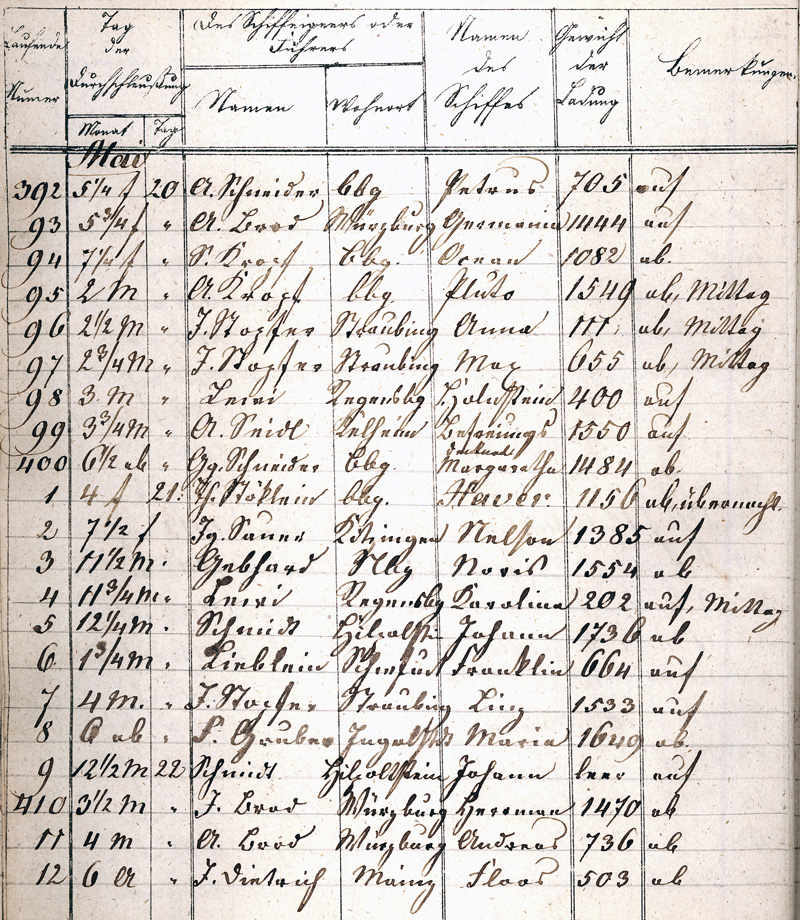 Laufende Numer | Tag der Durchschleußung | Des Schiffeigners oder Führers | Namen des Schiffes | Gewicht der Ladung | Bemerkungen
Monat | Tag | Namen | Wohnort
Mai
392 5 1/4 f 20 A. Schneider bbg Petrus 705 auf
93 5 3/4 f " A. Brod Würzburg Germania 1444 auf
94 7 1/4 f " S. Kropf bbg. Ocean 1082 ab.
95 2 M " A. Kropf bbg. Pluto 1549 ab, Mittag
96 2 1/2 M " J. Stopfer Straubing Anna 111, ab, Mittag
97 2 3/4 M " J. Stopfer Straubing Max 655 ab, Mittag
98 3 M " Regensbg 400 auf
99 3 3/4 M " A. Seidl Kelheim Befreiungs 1550 auf
400 6 1/2 ab " Gg. Schneider bbg. Margaretha 1484 ab.
1 4 f 21. Stöklein bbg. Xaver 1156 ab, übernacht.
2 7 1/2 f Jg. Sauer Kitzingen Nelson 1385 auf
3 11 1/2 M. Gebhard Nbg Noris 1554 ab
4 11 3/4 M " Regensbg Karolina 202 auf, Mittag
5 12 1/4 M. Schmidt Hilpoltst Johann 1736 ab
6 1 3/4 M " Lieblein Schwfurt Franklin 664 auf
7 4 M. " J. Stopfer Straubing Linz 1533 auf
8 6 ab " Gruber Ingolstdt Maria 1649 ab.
9 12 1/2 M 22 Schmidt Hilpoltstein Johann leer auf
410 3 1/2 M " J. Brod Würzburg Herrman 1470 ab
11 4 M " A. Brod Würzburg Andreas 736 ab
12 6 A " J. Dietrich Mainz Floos 503 ab